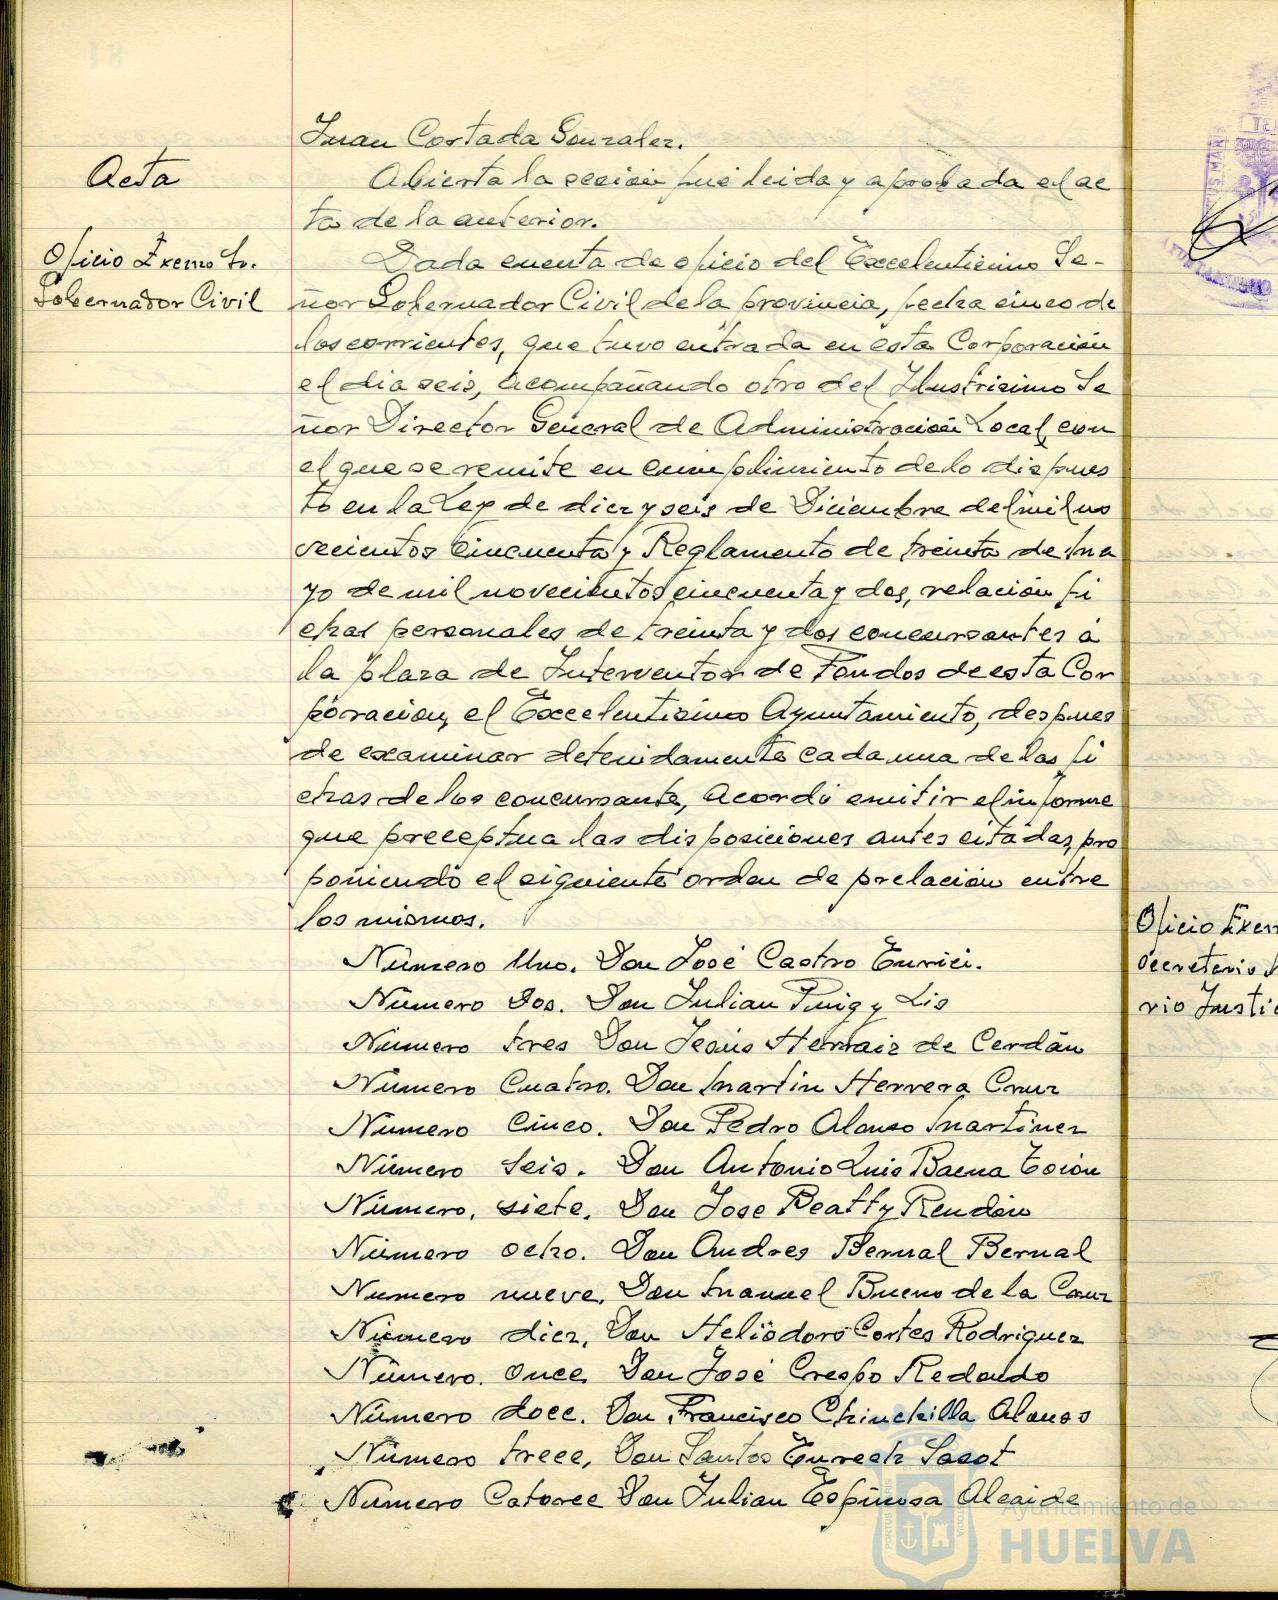 Juan Cortada Gonzalez.
Acta
Abierta la sesión fué leida y aprobada el ac
ta de la anterior.
Oficio Excmo Sr.
Gobernador Civil
Dada cuenta de oficio del Excelentisimo Se-
ñor Gobernador Civil de la provincia, fecha cinco de
los corrientes, que tuvo entrada en esta Corporación
el dia seis, acompañando otro del Ilustrisimo Se
ñor Director General de Administración Local, con
el que se remite en cumplimiento de lo dispues
to en la Ley de diez y seis de Diciembre de mil no
vecientos cincuenta y Reglamento de treinta de Ma
yo de mil novecientos cincuenta y dos, relación fi
chas personales de treinta y dos concursantes á
la plaza de Interventor de Fondos de esta Cor
poracion, el Excelentisimo Ayuntamiento, despues
de examinar detenidamente cada una de las fi
chas de los concursante, acordó emitir el informe
que preceptua las disposiciones antes citadas, pro
poniendo el siguiente orden de prelación entre
los mismos.
Número Uno. Don José Castro Enrici.
Número Dos. Don Julian Puig y Lis
Número tres Don Jesús Herraiz de Cerdán
Número Cuatro. Don Martin Herrera Cruz
Número Cinco. Don Pedro Alonso Martinez
Número Seis. Don Antonio Luis Baena Tocón
Número, siete. Don Jose Beatty Rendón
Número ocho. Don Andres Bernal Bernal
Numero nueve. Don Manuel Bueno de la Cruz
Número diez, Don Heliodoro Cortes Rodriguez
Número. Once. Don José Crespo Redondo
Número doce. Don Francisco Chinchilla Alonso
Número trece, Don Santos Enrech Sasot
Número Catorce Don Julian Espinosa Alcaide
Oficio Excm
Secretario
rio Justi
Ayuntamiento de
HUELVA